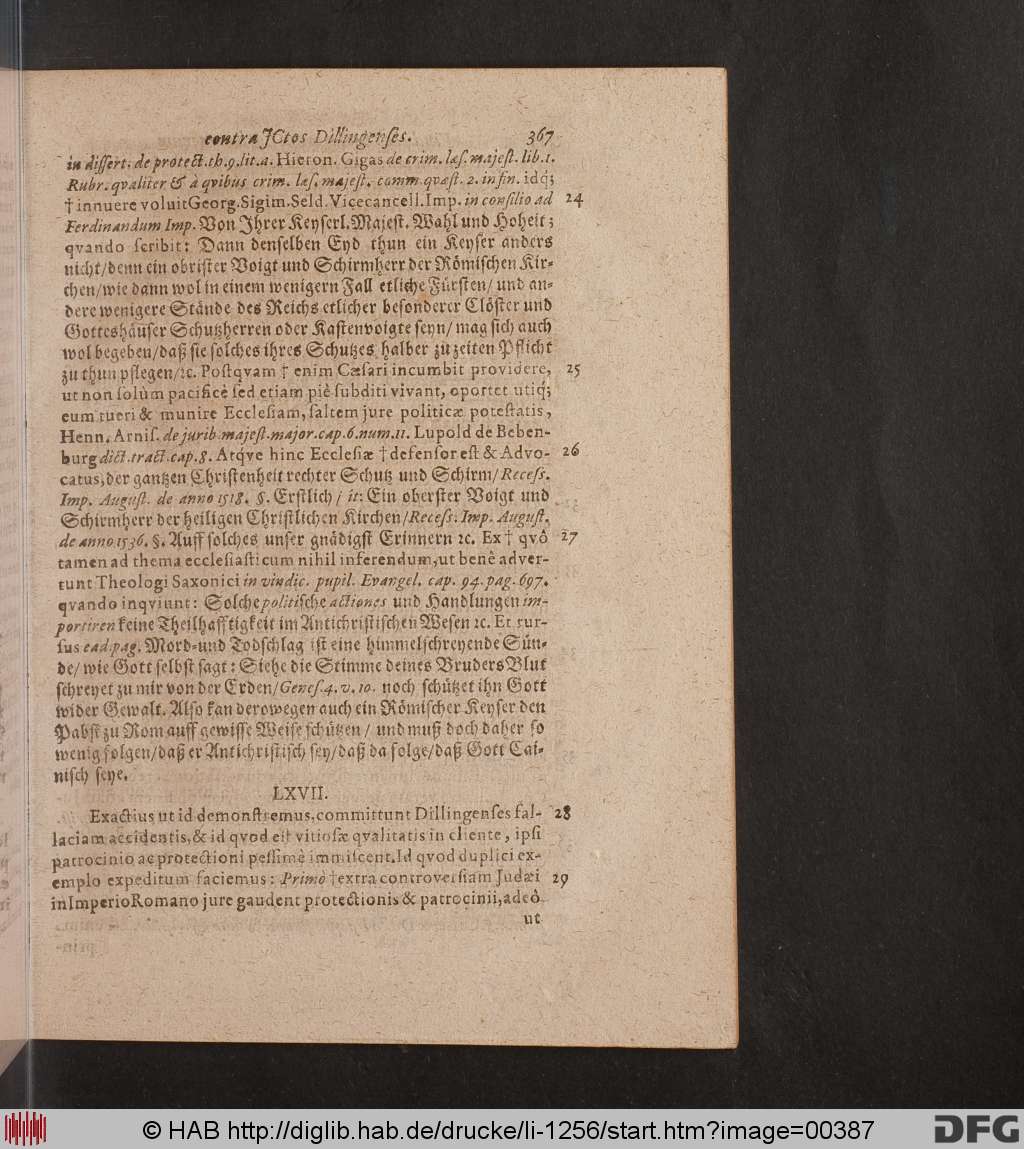 contra JCtos Dillingenses. 367
in dissert. de protect. th. 9. lit. a. Hieron. Gigas de crim. læs. majest. lib. 1.
Rubr. qvaliter & à qvibus crim. læs. majest. comm. quæst. 2. in fin. idq́;
† innuere voluit Georg. Sigim. Seld. Vicecancell. Imp. in consilio ad 24
Ferdinandum Imp. Von Jhrer Keyserl. Majest. Wahl und Hoheit;
qvando scribit: Dann denselben Eyd thun ein Keyser anders
nicht/denn ein obrister Voigt und Schirmherr der Römischen Kir-
chen/wie dann wol in einem wenigern Fall etliche Fürsten/ und an-
dere wenigere Stände des Reichs etlicher besonderer Clöster und
Gotteshäuser Schutzherren oder Kastenvoigte seyn/ mag sich auch
wol begeben/daß sie solches ihres Schutzes halber zu zeiten Pflicht
zu thun pflegen/ꝛc. Postqvam † enim Cæsari incumbit providere, 25
ut non solùm pacificè sed etiam piè subditi vivant, oportet utiq́;
eum tueri & munire Ecclesiam, saltem jure politicæ potestatis,
Henn. Arnis. de jurib. majest. major. cap. 6. num. 11. Lupold de Beben-
burg dict. tract. cap. 8. Atqve hinc Ecclesiæ † defensor est & Advo- 26
catus, der gantzen Christenheit rechter Schutz und Schirm/ Recess.
Imp. August. de anno 1518. §. Erstlich/ it: Ein oberster Voigt und
Schirmherr der heiligen Christlichen Kirchen/Recess. Imp. August.
de anno 1536. §. Auff solches unser gnädigst Erinnern ꝛc. Ex † qvô 27
tamen ad thema ecclesiasticum nihil inferendum, ut benè adver-
tunt Theologi Saxonici in vindic. pupil. Evangel. cap. 94. pag. 697.
qvando inqviunt: Solche politische actiones und Handlungen im-
portiren keine Theilhafftigkeit im Antichristischen Wesen ꝛc. Et rur-
sus ead. pag. Mord-und Todschlag ist eine himmelschreyende Sün-
de/ wie Gott selbst sagt: Siehe die Stimme deines Bruders Blut
schreyet zu mir von der Erden/ Genes. 4. v. 10. noch schützet ihn Gott
wider Gewalt. Also kan derowegen auch ein Römischer Keyser den
Pabst zu Rom auff gewisse Weise schützen/ und muß doch daher so
wenig folgen/daß er Antichristisch sey/daß da folge/daß Gott Cai-
nisch seye.
LXVII.
Exactius ut id demonstremus, committunt Dillingenses fal- 28
laciam accidentis, & id qvod est vitiosæ qvalitatis in cliente, ipsi
patrocinio ac protectioni pessimè immiscent. Id qvod duplici ex-
emplo expeditum faciemus: Primò † extra controversiam Judæi 29
in Imperio Romano jure gaudent protectionis & patrocinii, adeô
ut
© HAB http://diglib.hab.de/drucke/li-1256/start.htm?image=00387
DFG